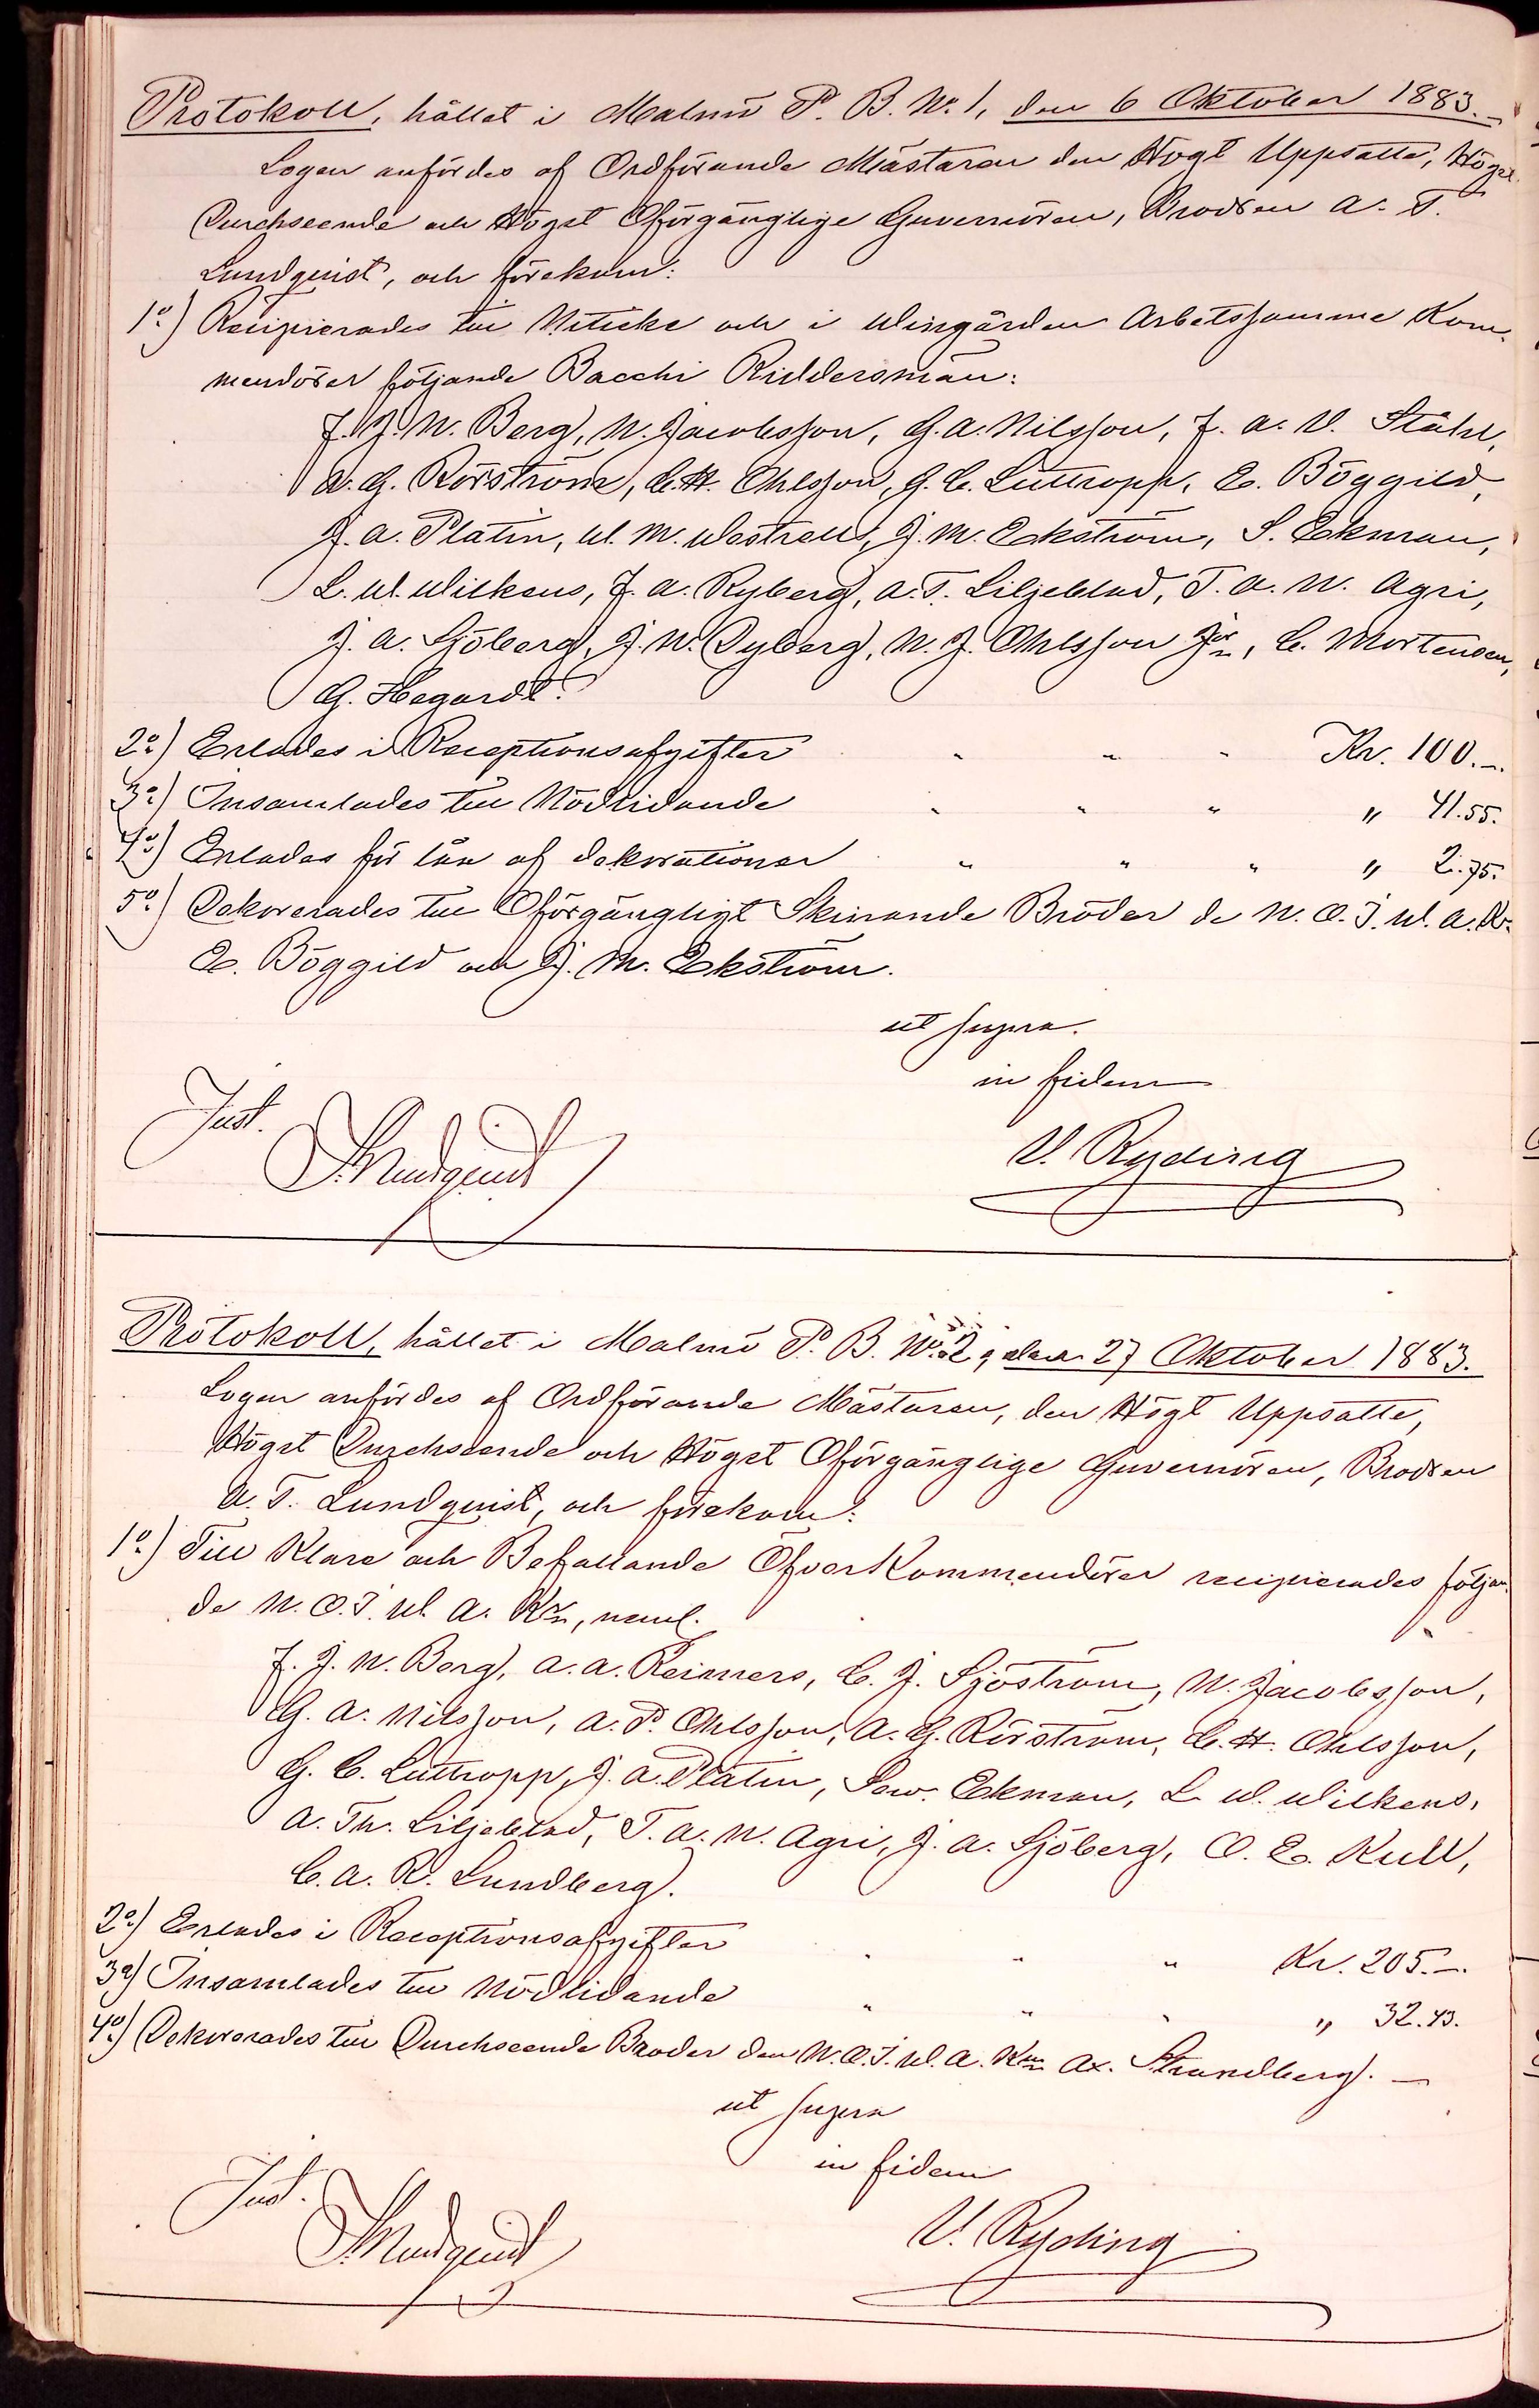 Protokoll, hållet i Malmö P. B. No 1, den 6 Oktober 1883.
Logen anfördes af Ordförande Mästaren den Högt Uppsatte, Högst
Durchseende och Högst Oförgänglige Guvernören, Brodren A. T.
Lundquist, och förekom:
1o) Recipierades till Nitiske och i Wingården Arbetssamme Kom-
mendörer följande Bacchi Riddersmän:
F. J. N. Berg, N. Jacobsson, G. A. Nilsson, F. A. V. Ståhl,
A. G. Rörström, C. H. Ohlsson, G. C. Luttropp, E. Böggild,
J. A. Platin, W. M. Westrell, J. M. Eckström, S. Eckman,
L. W. Wilkens, F. A. Ryberg, A. T. Liljeblad, T. A. N. Agri,
J. A. Sjöberg, J. N. Dyberg, N. J. Ohlsson Jor, C. Mortensen,
G. Hegardt.
2o) Erlades i Receptionsafgifter " " " Kr. 100.–.
3o) Insamlades till Nödlidande " " " " 41.55.
4o) Erlades för lån af dekorationer " " " " 2.75.
5o) Dekorerades till Oförgängligt Skinande Bröder de N. O. I. W. A. Kr.
E. Böggild och J. M. Eckström.
ut supra.
in fidem
Just.
A. T. Lundquist
V. Ryding
Protokoll, hållet i Malmö P. B. No 2, den 27 Oktober 1883.
Logen anfördes af Ordförande Mästaren, den Högt Uppsatte,
Högst Durchseende och Högst Oförgänglige Guvernören, Brodren
A. T. Lundquist, och förekom:
1o) Till Klare och Befallande ÖfverKommendörer recipierades följan-
de N. O. I. W. A. Kr, neml.
F. J. N. Berg, A. A. Reimers, C. J. Sjöström, N. Jacobsson,
G. A. Nilsson, A. P. Ohlsson, A. G. Rörström, C. H. Ohlsson,
G. C. Luttropp, J. A. Platin, Sew. Ekman, L. W. Wilkens,
A. Th. Liljeblad, T. A. N. Agri, J. A. Sjöberg, O. E. Kull,
C. A. R. Lundberg.
2o) Erlades i Receptionsafgifter " " " Kr. 205.–.
3o) Insamlades till Nödlidande " " " " 32.43.
4o) Dekorerades till Durchseende Broder den N. O. I. W. A. Kn Ax. Strandberg. –
ut supra
in fidem
Just.
A. T. Lundquist
V. Ryding